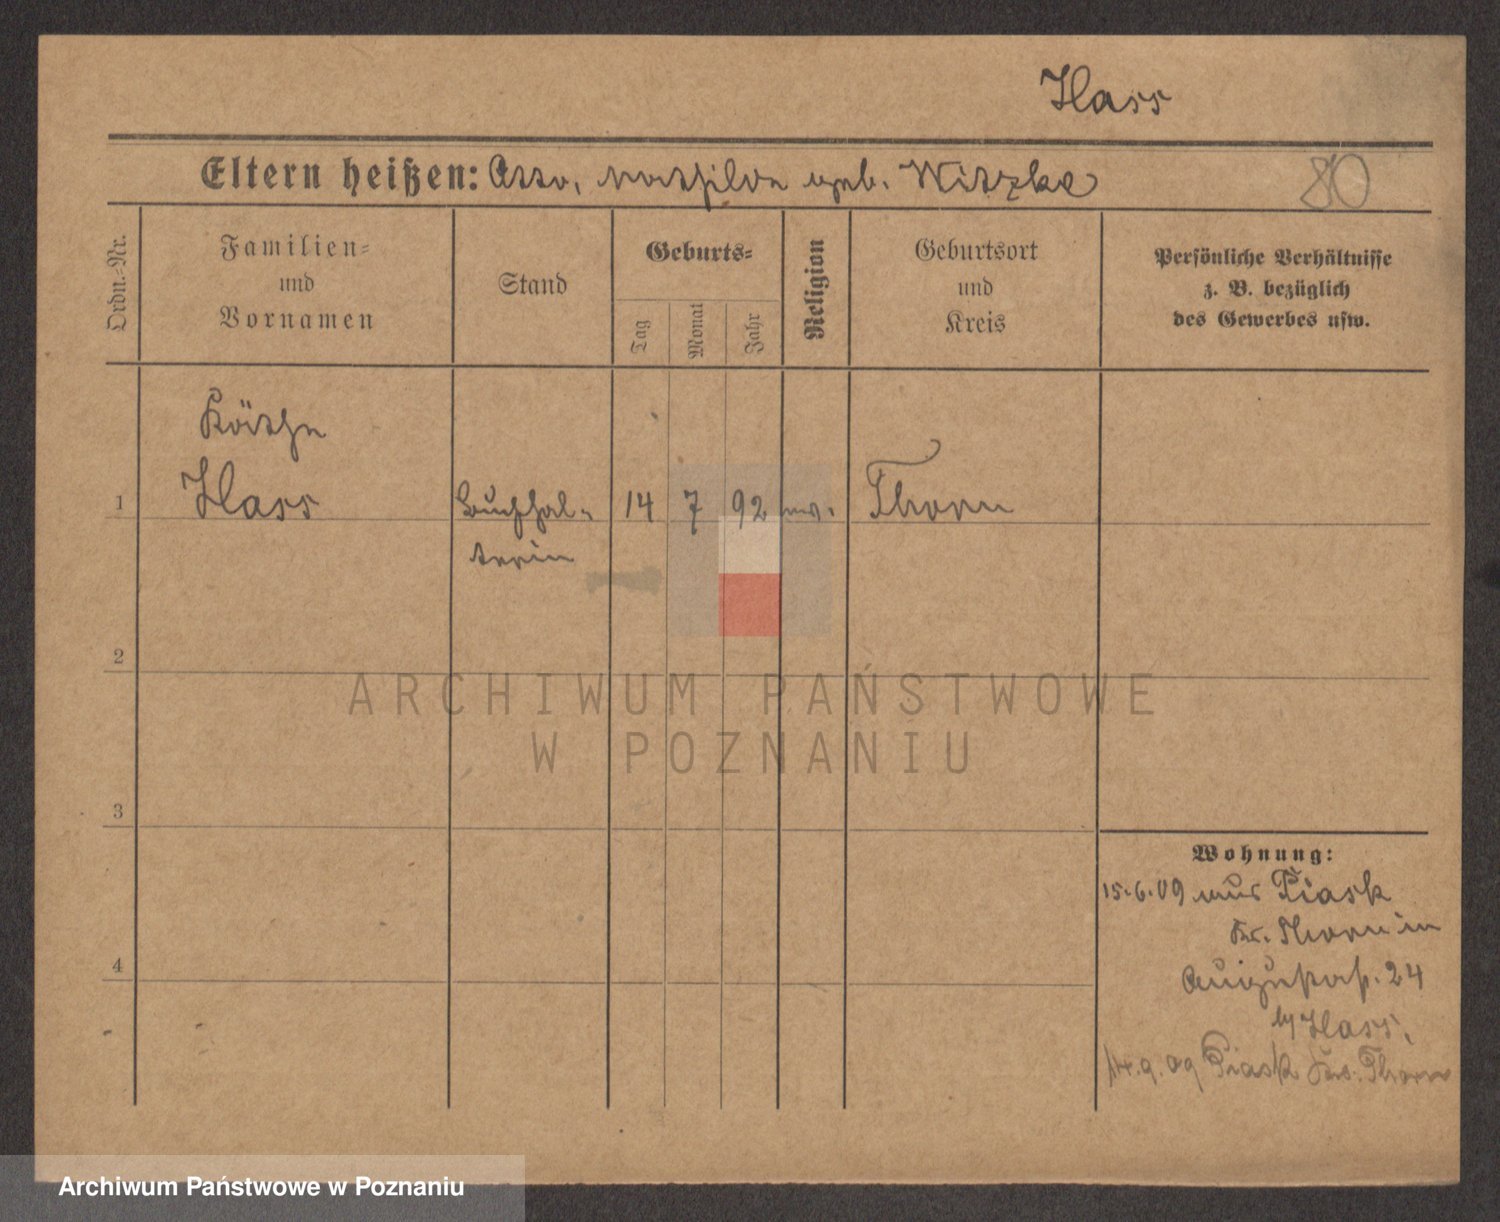 Hass
Eltern heißen: Otto, Mathilde geb. Witzke
80
Ordn.-Nr.
Familien-
und
Vornamen
Stand
Geburts-
Tag
Monat
Jahr
Religion
Geburtsort
und
Kreis
Persönliche Verhältnisse
z. B. bezüglich
des Gewerbes usw.
Käthe
1 Hass Buchhal- 14 7 92 ev. Thorn
terin
2
3
4
Wohnung:
15.6.09 aus Piask
Kr. Thorn in
Augustastr. 24
by Hass.
14.9.09 Piask Krs. Thorn
ARCHIWUM PAŃSTWOWE
W POZNANIU
Archiwum Państwowe w Poznaniu